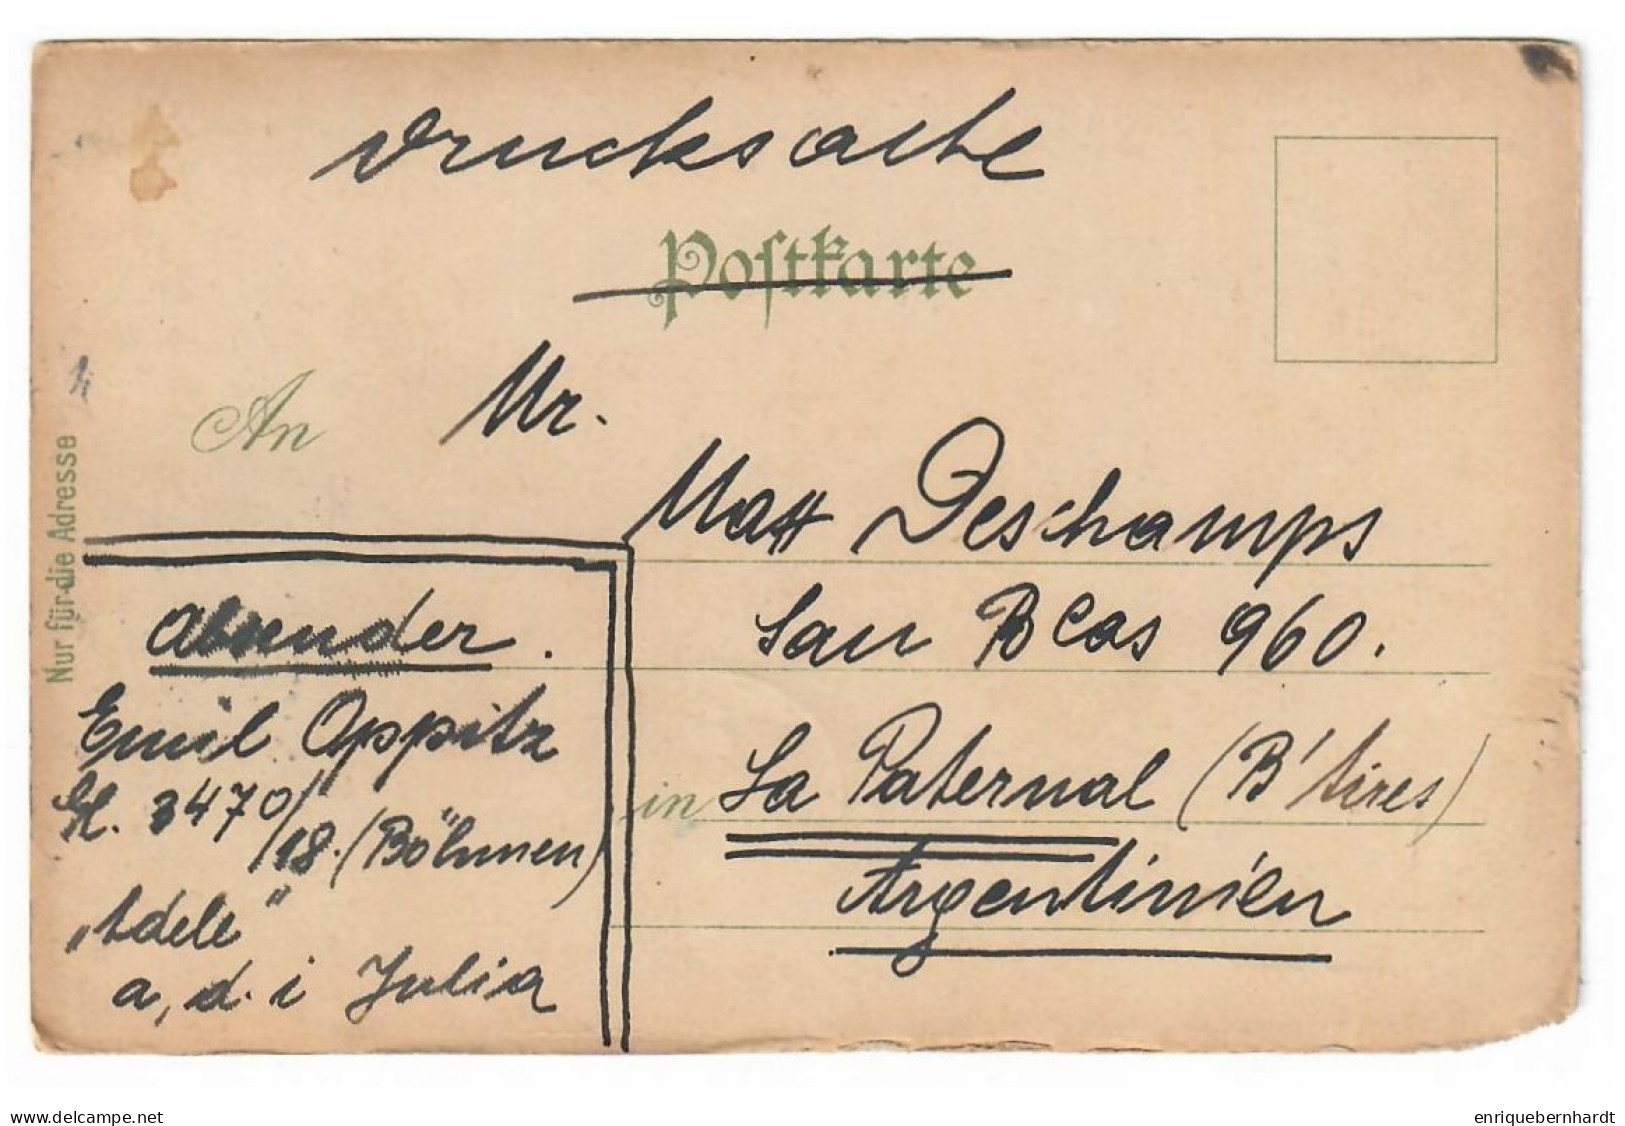 Drucksache
Postkarte
An Mr.
Nur für die Adresse
Deschamps
San Blas 960.
in La Paternal (B'Aires)
Argentinien
Absender.
Emil Oppitz
3470/
18. (Böhmen)
„Adele"
a, d. i Julia
www.delcampe.net
enriquebernhardt